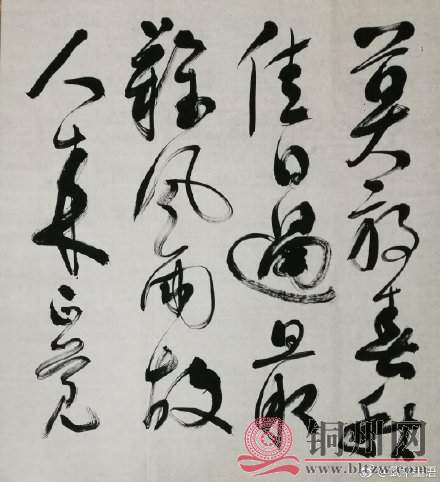 莫放春秋
佳日過最
難風雨故
人来
铜州网
www.bltzw.com